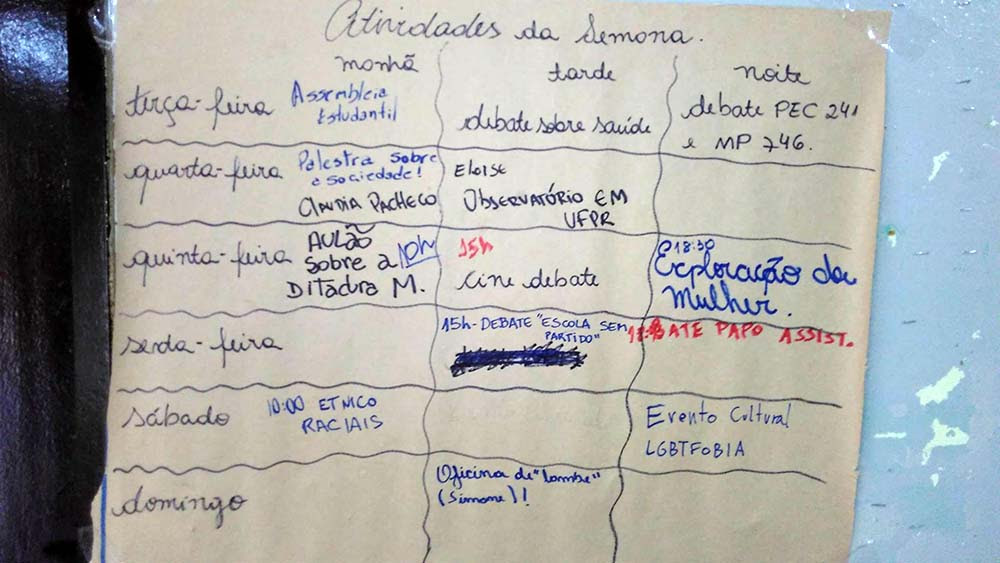 Atividades da Semana.
manhã tarde noite
terça-feira Assembleia Estudantil debate sobre saúde debate PEC 241 e MP 746.
quarta-feira Palestra sobre a sociedade! CLAUDIA PACHECO Eloise OBSERVATÓRIO EM UFPR
quinta-feira AULÃO sobre a DITADURA M. 10h 15h cine debate 18:30 Exploração da Mulher.
sexta-feira 15h-DEBATE "ESCOLA SEM PARTIDO" BATE PAPO ASSIST.
sábado 10:00 ETNICO RACIAIS Evento Cultural LGBTFOBIA
domingo Oficina de "lambe" (Simone)!